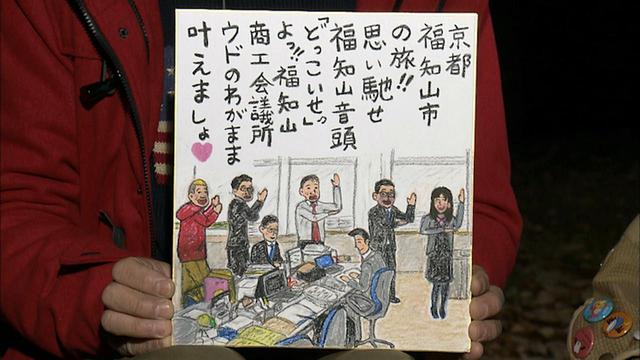 京都
福知山市
の旅!!
思い馳せ
福知山音頭
「どっこいせっ」
よっ!!福知山
商工会議所
ウドのわがまま
叶えましょ♥